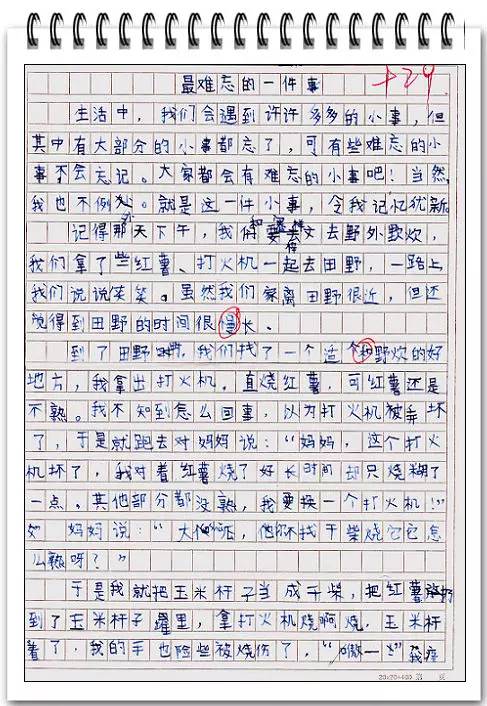 最难忘的一件事 +29
生活中，我们会遇到许许多多的小事，但
其中有大部分的小事都忘了，可有些难忘的小
事不会忘记。大家都会有难忘的小事吧！当然
我也不例外。就是这一件小事，令我记忆犹新
记得那天下午，我和 要去 去野外野炊，
我们拿了些红薯、打火机一起去田野，一路上
我们说说笑笑。虽然我们家离田野很近，但还
觉得到田野的时间很漫长、
到了田野时，我们找了一个适和野炊的好
地方，我拿出打火机，直烧红薯，可红薯还是
不熟。我不知到怎么回事，以为打火机被弄坏
了，于是就跑去对妈妈说：“妈妈，这个打火
机坏了，我对着红薯烧了好长时间却只烧糊了
一点。其他部分都没熟，我要换一个打火机！”
妈妈说：“大 ，他 不找干柴烧它它怎
么熟呀？”
于是我就把玉米杆子当成干柴，把红薯 
到了玉米杆子 里，拿打火机烧啊烧，玉米杆
着了，我的手也险些被烧伤了，“嗷一 ”我
20×20=400 第 页